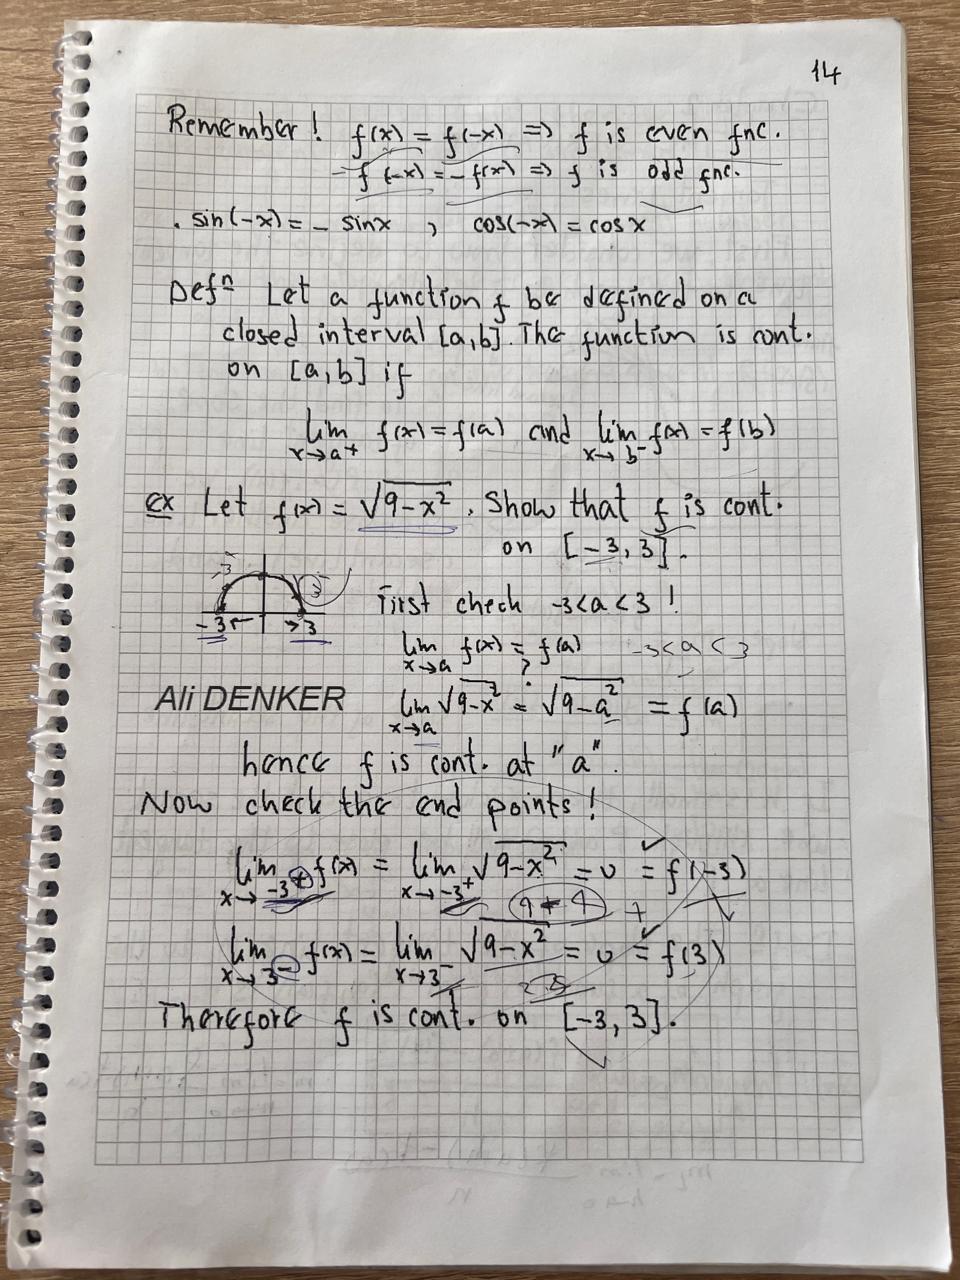 14
Remember! f(x) = f(-x) => f is even fnc.
f(-x) = -f(x) => f is odd fnc.
. sin(-x) = - sinx , cos(-x) = cosx
Defⁿ Let a function f be defined on a
closed interval [a,b]. The function is cont.
on [a,b] if
lim x→a⁺ f(x) = f(a) and lim x→b⁻ f(x) = f(b)
ex Let f(x) = √9-x² . Show that f is cont.
on [-3, 3].
-3 3
First check -3<a<3 !
lim x→a f(x) = f(a) -3<a<3
?
Ali DENKER
lim x→a √9-x² = √9-a² = f(a)
hence f is cont. at "a".
Now check the end points!
lim x→-3⁺ f(x) = lim x→-3⁺ √9-x² = 0 = f(-3)
lim x→3⁻ f(x) = lim x→3⁻ √9-x² = 0 = f(3)
Therefore f is cont. on [-3, 3].